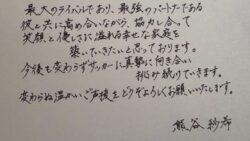 最大のライバルであり、最強のパートナーである
彼と共に高め合いながら、協力し合って
笑顔と優しさに溢れる幸せな家庭を
築いていきたいと思っております。
今後も変わらずサッカーに真摯に向き合い
挑み続けていきます。
変わらぬ温かいご声援をどうぞよろしくお願いいたします。
熊谷紗希